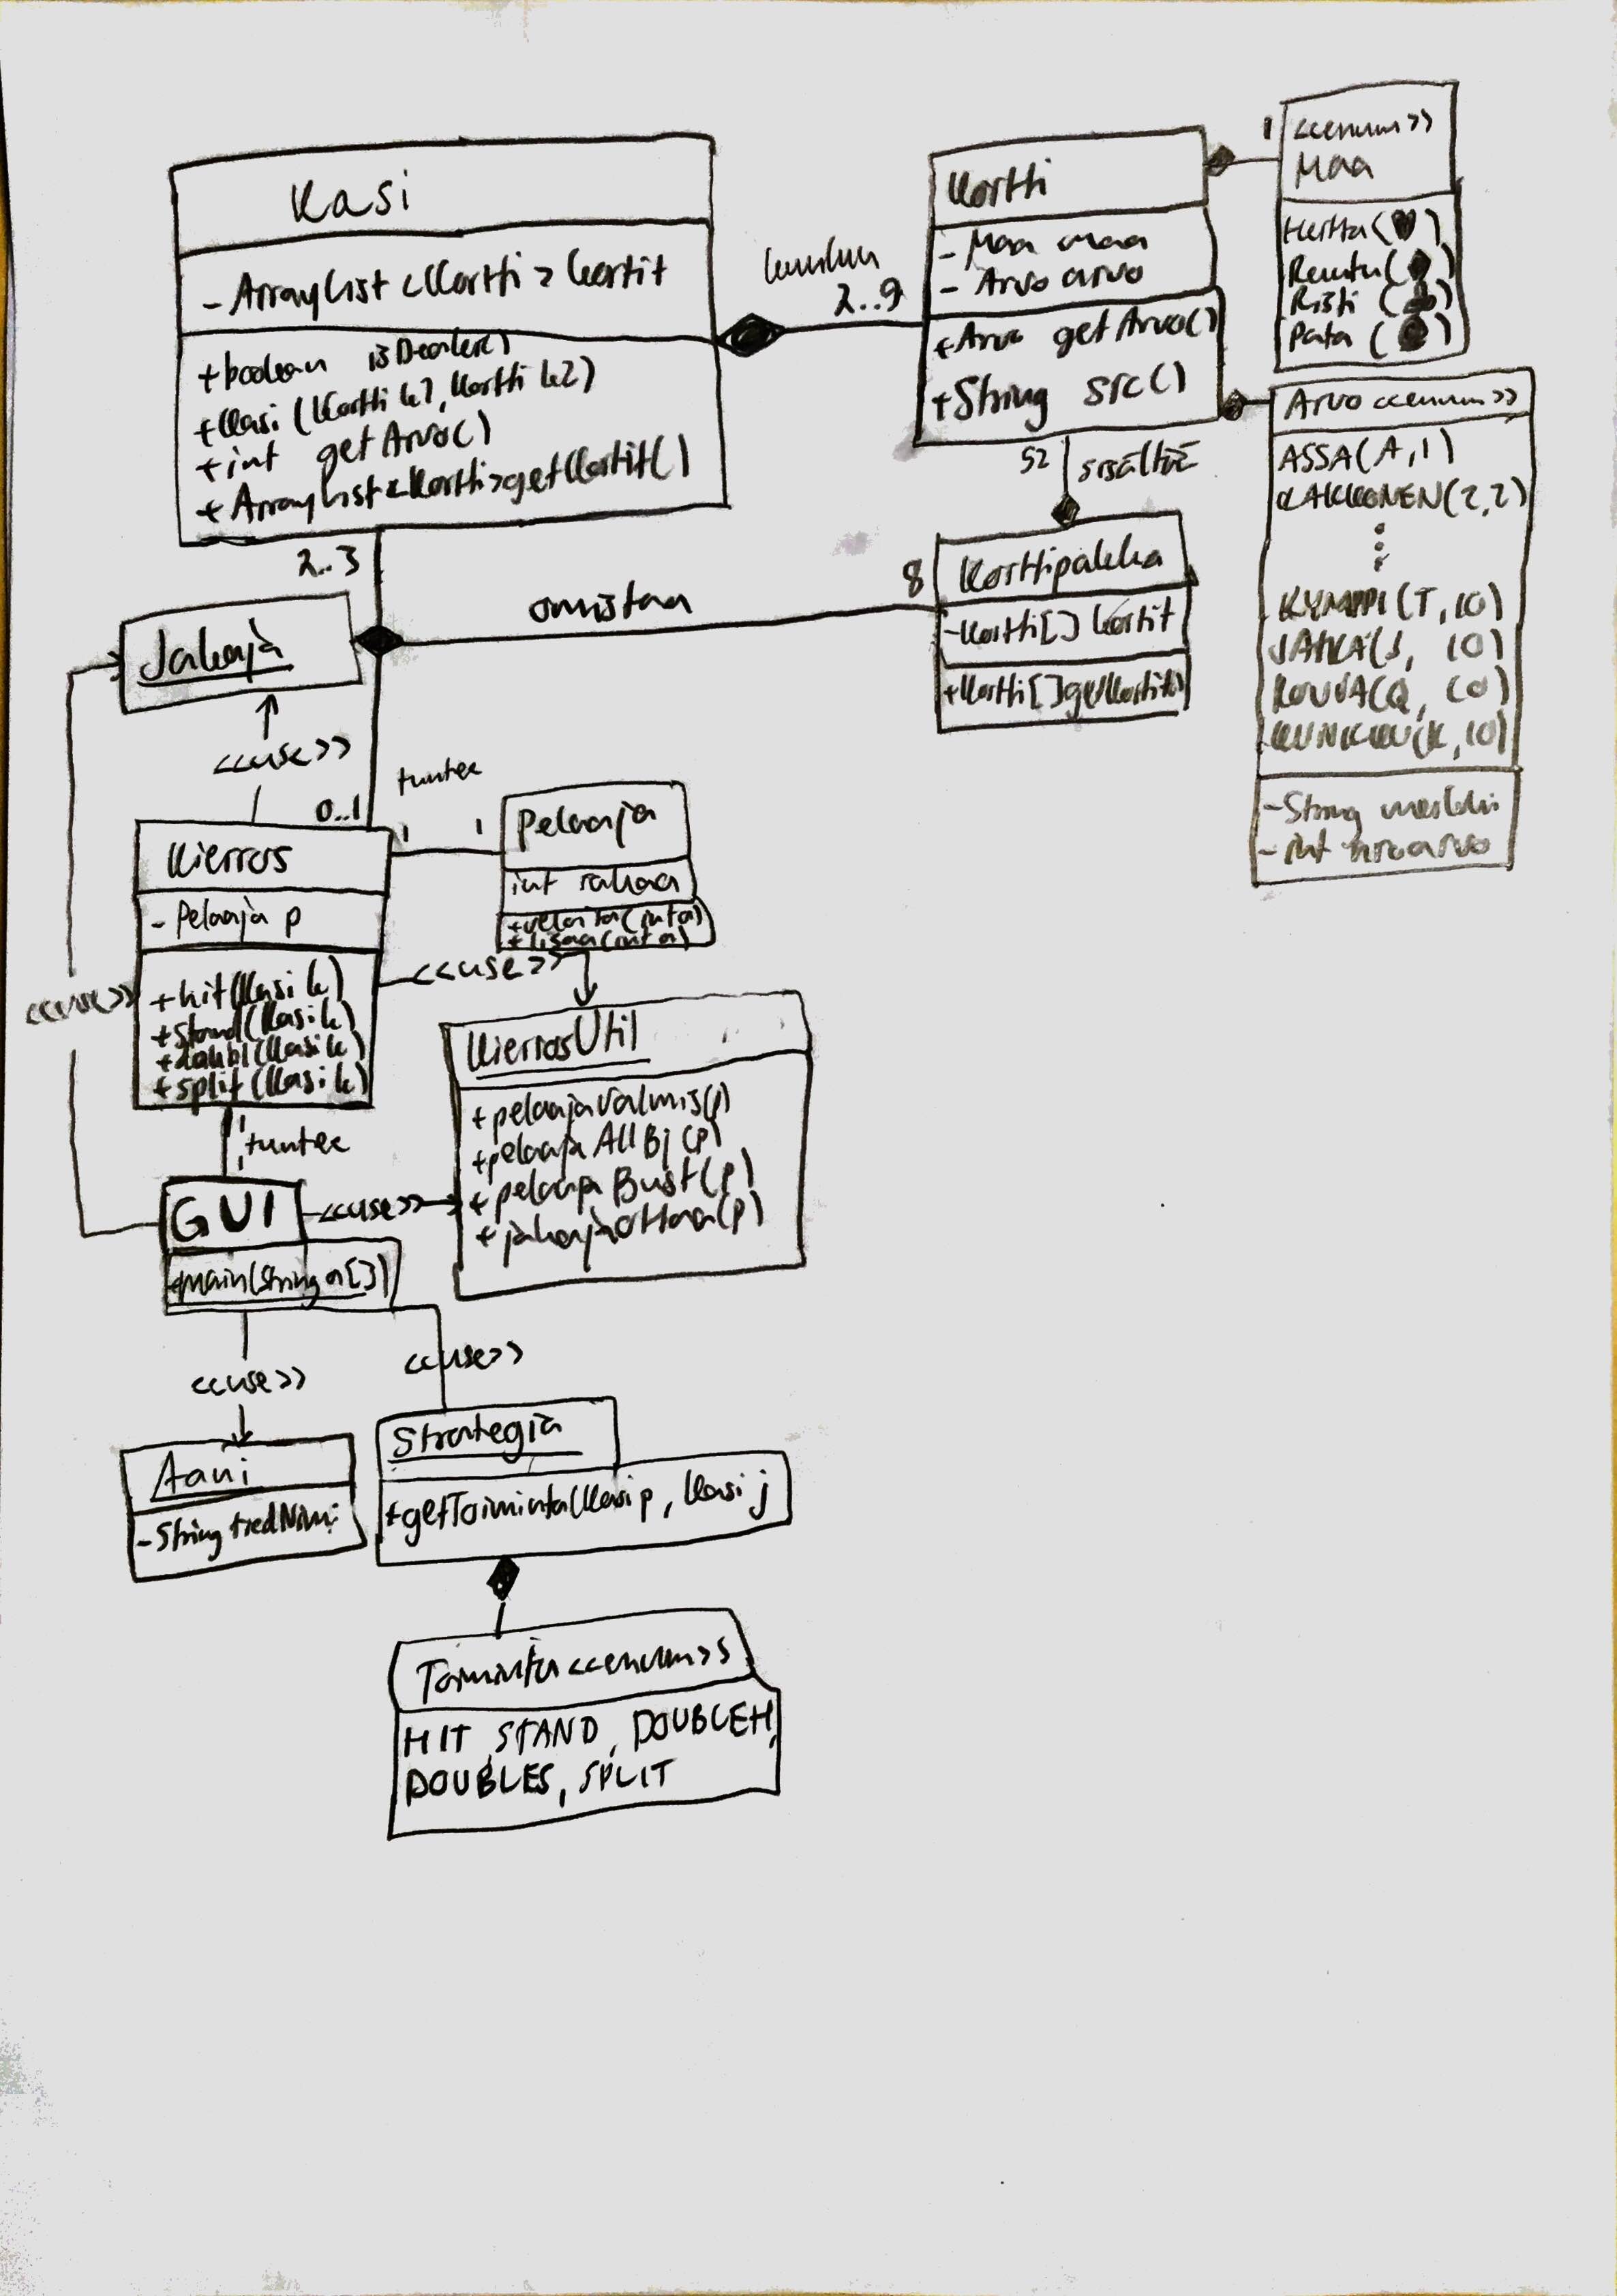 Kasi
- ArrayList<Kortti> kortit
+boolean isDealer()
+Kasi (Kortti k1, Kortti k2)
+int getArvo()
+ ArrayList<Kortti>getKortit()
kuuluu
2..9
Kortti
- Maa maa
- Arvo arvo
+Arvo getArvo()
+String src()
1
<<enum>>
Maa
Hertta(♥)
Ruutu(♦)
Risti (♣)
Pata (♠)
Arvo <<enum>>
ASSA(A,1)
KAKKONEN(2,2)
KYMPPI(T,10)
JATKA(J, 10)
ROUVA(Q, 10)
KUNKKU(K,10)
-String merkki
- int
52
sisältää
Korttipakka
-Kortti[] kortit
+Kortti[]getKortit()
8
omistaa
2..3
Jakaja
<<use>>
0..1
tuntee
1
1
Kierros
- Pelaaja p
+hit(Kasi k)
+stand(Kasi k)
+doubl(Kasi k)
+split(Kasi k)
Pelaaja
int rahaa
+velota(int a)
+lisaa(int a)
<<use>>
<<use>>
KierrosUtil
+pelaajaValmis(p)
+pelaajaAllBj(p)
+pelaajaBust(p)
+jakajaOttaa(p)
1
tuntee
1
GUI
<<use>>
+main(String a[])
<<use>>
<<use>>
Aani
-String tiedNimi
Strategia
+getToiminta(Kasi p, Kasi j
Toiminta<<enum>>
HIT, STAND, DOUBLEH,
DOUBLES, SPLIT